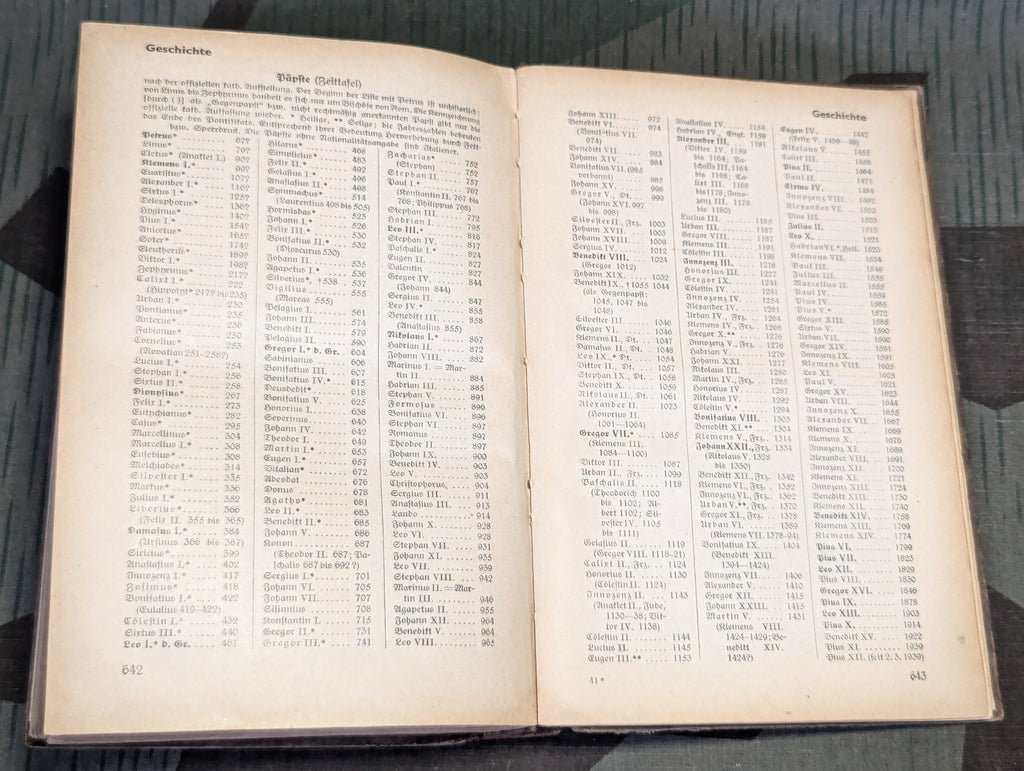 Geschichte
Päpste (Zeittafel)
nach der offiziellen kath. Aufstellung. Der Beginn der Liste mit Petrus ist unhistorisch;
von Linus bis Zephyrinus handelt es sich nur um Bischöfe von Rom. Die Kennzeichnung
[durch ( )] als „Gegenpapst“ bzw. nicht rechtmäßig anerkannten Papst gibt nur die
offizielle kath. Auffassung wieder. * Heilige, ** Selige; die Jahreszahlen bedeuten
das Ende des Pontifikats. Entsprechend ihrer Bedeutung Hervorhebung durch Fett-
bzw. Sperrdruck. Die Päpste ohne Nationalitätsangabe sind Italiener.
Petrus* 67?
Linus* 79?
Cletus* (Anaklet I.) 90?
Klemens I.* 99?
Euaristus* 107?
Alexander I.* 116?
Sixtus I.* 125?
Telesphorus* 136?
Hyginus* 140?
Pius I.* 154?
Anicetus* 165?
Soter* 174?
Eleutherus* 189?
Viktor I.* 198?
Zephyrinus* 217?
Calixt I.* 222
(Hippolyt* 217? bis 235)
Urban I.* 230
Pontianus* 235
Anterus* 236
Fabianus* 250
Cornelius* 253
(Novatian 251–258?)
Lucius I.* 254
Stephan I.* 256
Sixtus II.* 258
Dionysius* 267
Felix I.* 273
Eutychianus* 282
Cajus* 295
Marcellinus* 304
Marcellus I.* 308
Eusebius* 308
Melchiades* 314
Silvester I.* 335
Markus* 336
Julius I.* 352
Liberius* 366
(Felix II. 355 bis 365)
Damasus I.* 384
(Ursinus 366 bis 367)
Siricius* 399
Anastasius I.* 402
Innozenz I.* 417
Zosimus* 418
Bonifatius I.* 422
(Eulalius 419–422)
Cölestin I.* 432
Sixtus III.* 440
Leo I.* d. Gr. 461
Hilarus* 468
Simplicius* 483
Felix II.* 492
Gelasius I.* 496
Anastasius II.* 498
Symmachus* 514
(Laurentius 498 bis 505)
Hormisdas* 523
Johann I.* 526
Felix III.* 530
Bonifatius II.* 532
(Dioscurus 530)
Johann II. 535
Agapetus I.* 536
Silverius*, †538 537
Vigilius 555
(Mareas 555)
Pelagius I. 561
Johann III. 574
Benedikt I. 579
Pelagius II. 590
Gregor I.* d. Gr. 604
Sabinianus 606
Bonifatius III. 607
Bonifatius IV.* 615
Deusdedit* 618
Bonifatius V. 625
Honorius I. 638
Severinus 640
Johann IV. 642
Theodor I. 649
Martin I.* 653
Eugen I.* 657
Vitalian* 672
Adeodat 676
Donus 678
Agatho* 681
Leo II.* 683
Benedikt II.* 685
Johann V. 686
Konon 687
(Theodor II. 687; Pa-
schalis 687 bis 692?)
Sergius I.* 701
Johann VI. 705
Johann VII. 707
Sisinnius 708
Konstantin I. 715
Gregor II.* 731
Gregor III.* 741
Zacharias* 752
(Stephan)
Stephan II. 757
Paul I.* 767
(Konstantin IV. 767 bis
768; Philippus 768)
Stephan III. 772
Hadrian I. 795
Leo III.* 816
Stephan IV. 817
Paschalis I.* 824
Eugen II. 827
Valentin 827
Gregor IV. 844
(Johann 844)
Sergius II. 847
Leo IV.* 855
Benedikt III. 858
(Anastasius 855)
Nikolaus I.* 867
Hadrian II. 872
Johann VIII. 882
Marinus I. = Mar-
tin II. 884
Hadrian III. 885
Stephan V. 891
Formosus 896
Bonifatius VI. 896
Stephan VI. 897
Romanus 897
Theodor II. 897
Johann IX. 900
Benedikt IV. 903
Leo V. 903
Christophorus 904
Sergius III. 911
Anastasius III. 913
Lando 914
Johann X. 928
Leo VI. 928
Stephan VII. 931
Johann XI. 935
Leo VII. 939
Stephan VIII. 942
Marinus II. = Mar-
tin III. 946
Agapetus II. 955
Johann XII. 964
Benedikt V. 964
Leo VIII. 965
642
Geschichte
Johann XIII. 972
Benedikt VI. 974
(Bonifatius VII.
974)
Benedikt VII. 983
Johann XIV. 984
Bonifatius VII. (985
verbannt) 985
Johann XV. 996
Gregor V., Dt. 999
(Johann XVI. 997
bis 998)
Silvester II., Frz. 1003
Johann XVII. 1003
Johann XVIII. 1009
Sergius IV. 1012
Benedikt VIII. 1024
(Gregor 1012)
Johann XIX. 1032
Benedikt IX., †1055 1044
(als Gegenpapst:
1045, 1047 bis
1048)
Silvester III. 1046
Gregor VI. 1046
Klemens II., Dt. 1047
Damasus II., Dt. 1048
Leo IX.,* Dt. 1054
Viktor II., Dt. 1057
Stephan IX., Dt. 1058
Benedikt X. 1059
Nikolaus II., Dt. 1061
Alexander II. 1073
(Honorius II.
1061–1064)
Gregor VII.* 1085
(Klemens III.
1084–1100)
Viktor III. 1087
Urban II., Frz. 1099
Paschalis II. 1118
(Theoderich 1100
bis 1102; Al-
bert 1102; Sil-
vester IV. 1105
bis 1111)
Gelasius II. 1119
(Gregor VIII. 1118–21)
Calixt II., Frz. 1124
Honorius II. 1130
(Cölestin II. 1124)
Innozenz II. 1143
(Anaklet II., Jude,
1130–38; Vik-
tor IV. 1138)
Cölestin II. 1144
Lucius II. 1145
Eugen III.** 1153
Anastasius IV. 1154
Hadrian IV., Engl. 1159
Alexander III. 1181
(Viktor IV. 1159
bis 1164; Pa-
schalis III. 1164
bis 1168; Ca-
lixt III. 1168
bis 1178; Inno-
zenz III. 1179
bis 1180)
Lucius III. 1185
Urban III. 1187
Gregor VIII. 1187
Klemens III. 1191
Cölestin III. 1198
Innozenz III. 1216
Honorius III. 1227
Gregor IX. 1241
Cölestin IV. 1241
Innozenz IV. 1254
Alexander IV. 1261
Urban IV., Frz. 1264
Klemens IV., Frz. 1268
Gregor X.** 1276
Innozenz V.**, Frz. 1276
Hadrian V. 1276
Johann XXI. 1277
Nikolaus III. 1280
Martin IV., Frz. 1285
Honorius IV. 1287
Nikolaus IV. 1292
Cölestin V.* 1294
Bonifatius VIII. 1303
Benedikt XI.** 1304
Klemens V., Frz. 1314
Johann XXII., Frz. 1334
(Nikolaus V. 1328
bis 1330)
Benedikt XII., Frz. 1342
Klemens VI., Frz. 1352
Innozenz VI., Frz. 1362
Urban V.**, Frz. 1370
Gregor XI., Frz. 1378
Urban VI. 1389
(Klemens VII. 1378–94)
Bonifatius IX. 1404
(Benedikt XIII.
1394–1424)
Innozenz VII. 1406
Alexander V. 1410
Gregor XII. 1415
Johann XXIII. 1415
Martin V. 1431
(Klemens VIII.
1424–1429; Be-
nedikt XIV.
1424?)
Eugen IV. 1447
(Felix V. 1439–49)
Nikolaus V. 1455
Calixt III. 1458
Pius II. 1464
Paul II. 1471
Sixtus IV. 1484
Innozenz VIII. 1492
Alexander VI. 1503
Pius III. 1503
Julius II. 1513
Leo X. 1521
Hadrian VI.*, Holl. 1523
Klemens VII. 1534
Paul III. 1549
Julius III. 1555
Marcellus II. 1555
Paul IV. 1559
Pius IV. 1565
Pius V.* 1572
Gregor XIII. 1585
Sixtus V. 1590
Urban VII. 1590
Gregor XIV. 1591
Innozenz IX. 1591
Klemens VIII. 1605
Leo XI. 1605
Paul V. 1621
Gregor XV. 1623
Urban VIII. 1644
Innozenz X. 1655
Alexander VII. 1667
Klemens IX. 1669
Klemens X. 1676
Innozenz XI. 1689
Alexander VIII. 1691
Innozenz XII. 1700
Klemens XI. 1721
Innozenz XIII. 1724
Benedikt XIII. 1730
Klemens XII. 1740
Benedikt XIV. 1758
Klemens XIII. 1769
Klemens XIV. 1774
Pius VI. 1799
Pius VII. 1823
Leo XII. 1829
Pius VIII. 1830
Gregor XVI. 1846
Pius IX. 1878
Leo XIII. 1903
Pius X. 1914
Benedikt XV. 1922
Pius XI. 1939
Pius XII. (seit 2. 3. 1939)
41*
643